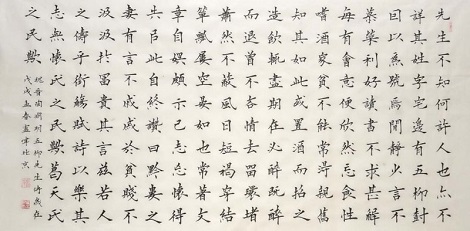 先生不知何許人也亦不
詳其姓字宅邊有五柳樹
因以為號焉閒靜少言不
慕榮利好讀書不求甚解
每有會意便欣然忘食性
嗜酒家貧不能常得親舊
知其如此或置酒而招之
造飲輒盡期在必醉既醉
而退曾不吝情去留環堵
蕭然不蔽風日短褐穿結
簞瓢屢空晏如也常著文
章自娛頗示己志忘懷得
失以此自終贊曰黔婁之
妻有言不戚戚於貧賤不
汲汲於富貴其言茲若人
之儔乎銜觴賦詩以樂其
志無懷氏之民歟葛天氏
之民歟
晉陶淵明五柳先生傳歲在
戊戌孟春